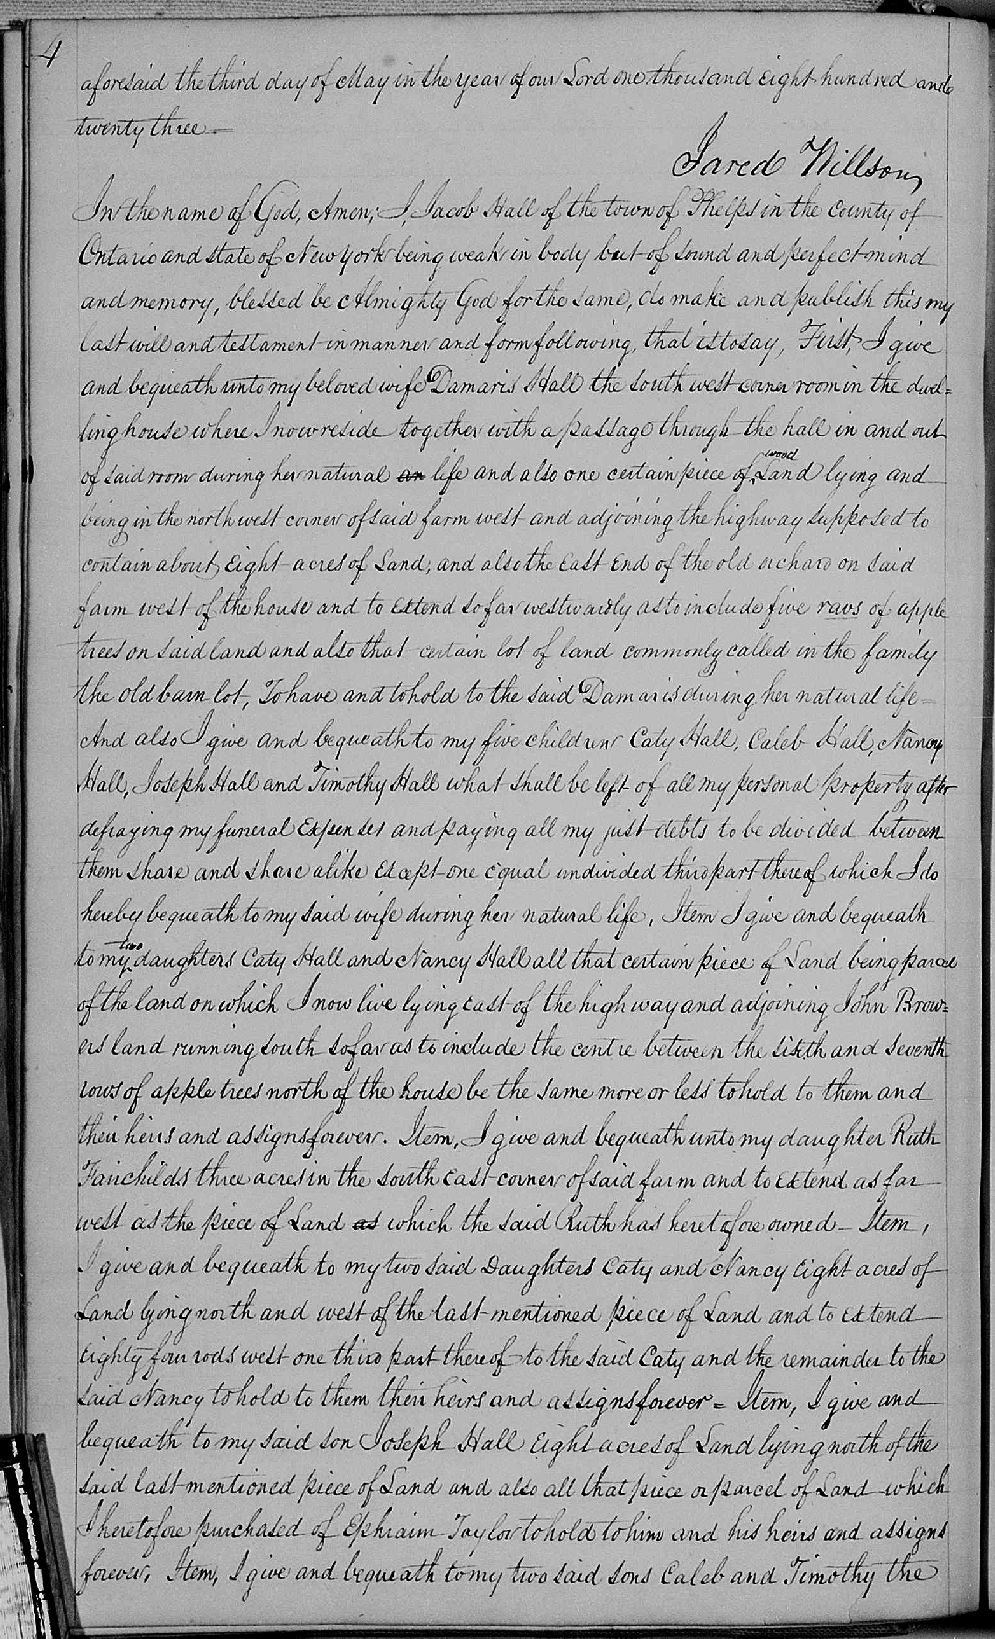 4
aforesaid the third day of May in the year of our Lord one thousand Eight hundred and
twenty three —
Jared Willson
In the name of God, Amen; I, Jacob Hall of the town of Phelps in the county of
Ontario and state of New York being weak in body but of sound and perfect mind
and memory, blessed be Almighty God for the same, do make and publish this my
last will and testament in manner and form following, that is to say, First, I give
and bequeath unto my beloved wife Damaris Hall the south west corner room in the dwel=
ling house where I now reside together with a passage through the hall in and out
of said room during her natural an life and also one certain piece of wood Land lying and
being in the north west corner of said farm west and adjoining the highway supposed to
contain about Eight acres of Land; and also the East End of the old orchard on said
farm west of the house and to extend so far westwardly as to include five raws of apple
trees on said land and also that certain lot of land commonly called in the family
the old barn lot, To have and to hold to the said Damaris during her natural life —
And also I give and bequeath to my five children Caty Hall, Caleb Hall, Nancy
Hall, Joseph Hall and Timothy Hall what shall be left of all my personal property after
defraying my funeral Expenses and paying all my just debts to be divided between
them share and share alike Except one Equal undivided third part thereof which I do
hereby bequeath to my said wife during her natural life, Item I give and bequeath
to my two daughters Caty Hall and Nancy Hall all that certain piece of Land being parcel
of the land on which I now live lying East of the high way and adjoining John Brow=
ers land running south so far as to include the centre between the sixth and seventh
rows of apple trees north of the house be the same more or less to hold to them and
their heirs and assigns forever. Item, I give and bequeath unto my daughter Ruth
Fairchilds three acres in the south East corner of said farm and to Extend as far
west as the piece of Land as which the said Ruth has heretofore owned — Item,
I give and bequeath to my two said Daughters Caty and Nancy Eight acres of
Land lying north and west of the last mentioned piece of Land and to Extend
Eighty four rods west one third part thereof to the said Caty and the remainder to the
said Nancy to hold to them their heirs and assigns forever = Item, I give and
bequeath to my said son Joseph Hall Eight acres of Land lying north of the
said last mentioned piece of Land and also all that piece or parcel of Land which
I heretofore purchased of Ephraim Taylor to hold to him and his heirs and assigns
forever, Item, I give and bequeath to my two said sons Caleb and Timothy the